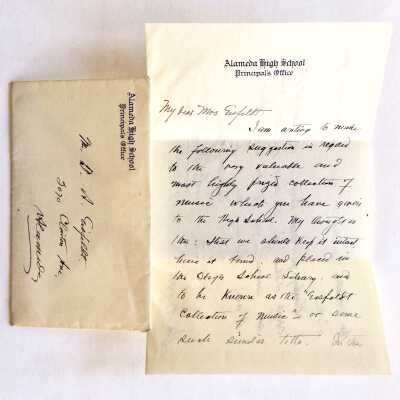 Alameda High School
Principal's Office
My dear Mrs
I am writing to make
the following suggestion in regard
to the very valuable and
most highly prized collection of
music which you have given
to the High School. My thought is
this: that we should keep it intact
have it bound, and placed in
the High School Library, and
to be known as the "
Collection of Music" or some
such similar title.
Alameda High School
Principal's Office
Clinton Ave.
Alameda